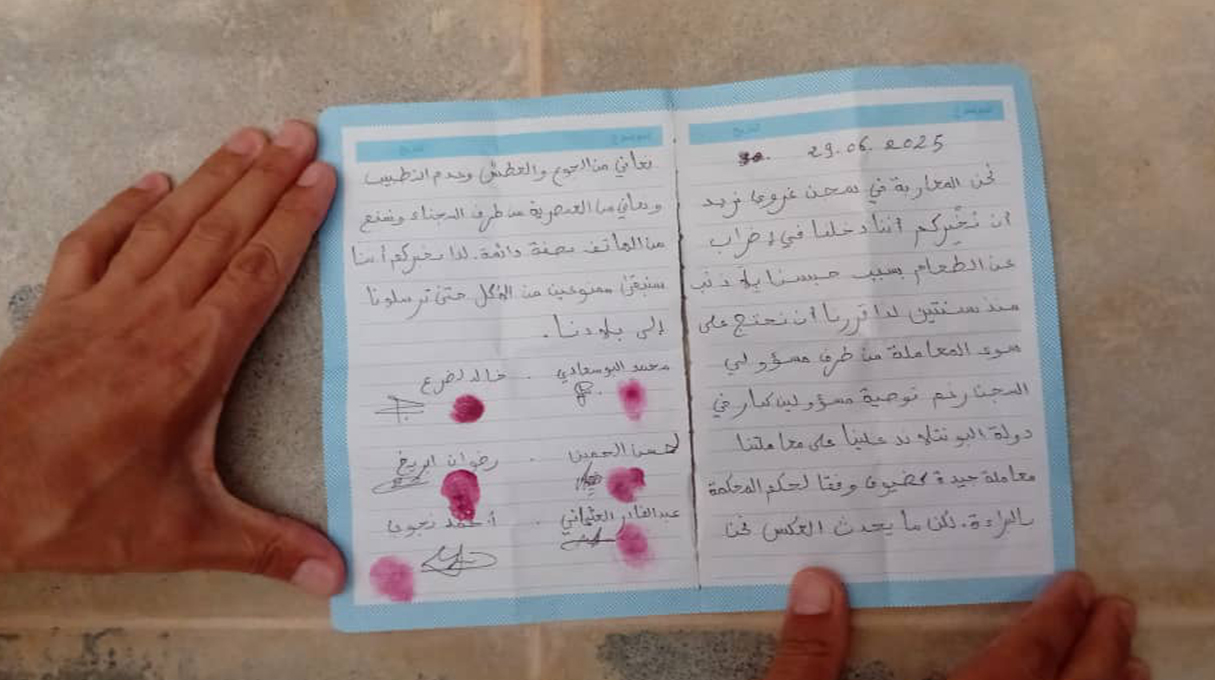 29.06.2025
نحن المغاربة في سجن غروي نريد
ان نُخْبِركم اننا دخلنا في إضراب
عن الطعام بسبب حبسنا بلا ذنب
منذ سنتين لذا قررنا ان نحتج على
سوء المعاملة من طرف مسؤولي
السجن رغم توصية مسؤولين كبار في
دولة البونتلاند علينا على معاملتنا
معاملة جيدة كضيوف وفقا لحكم المحكمة
بالبراءة. لكن ما يحدث العكس نحن
نعاني من الجوع والعطش وعدم التطبيب
ونعاني من العنصرية من طرف السجناء ونمنع
من الهاتف بصفة دائمة. لذا نخبركم أننا
سنبقى ممنوعين من الأكل حتى ترسلونا
إلى بلادنا.
محمد البوسعادي . خالد لضرع
لحسن الحسين . رضوان
عبدالقادر العثماني . أحمد نجوي